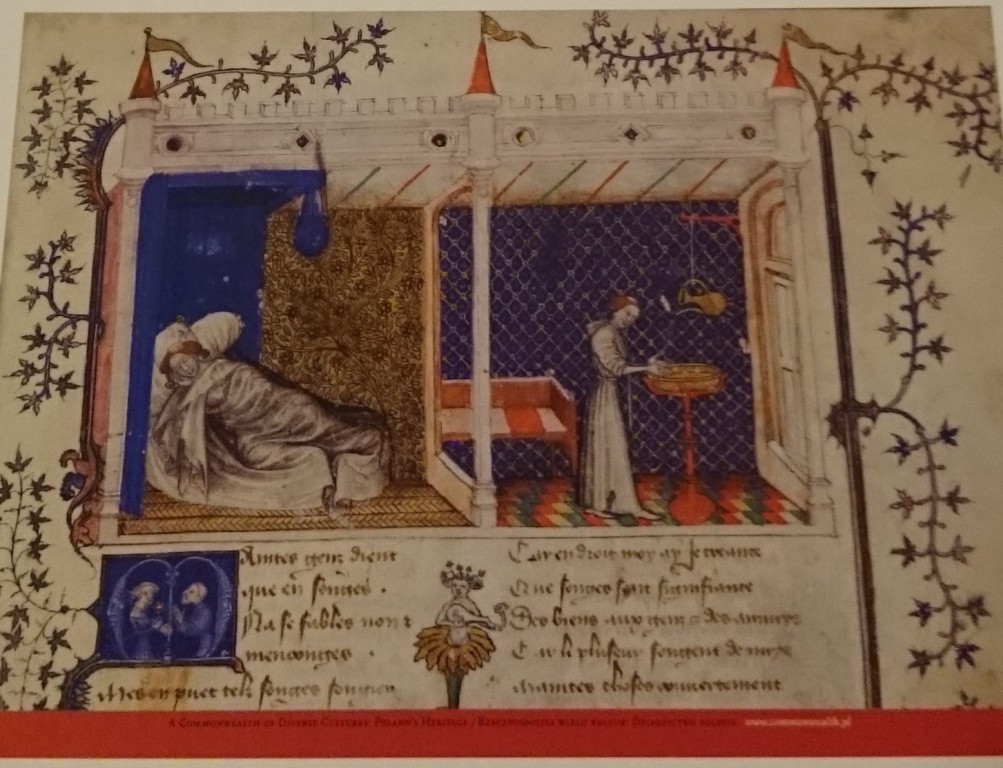 Aintes genz dient
que en songes
Na se fables non
menconges
Mes on puet telz songes songier
Car en droit moy ay je creance
Que songes soit signifiance
Des biens aux genz des annuys
Car li pluseur songent de nuyz
Maintes choses couvertement
A Commonwealth of Diverse Cultures: Poland's Heritage / Rzeczpospolita wielu kultur: Dziedzictwo polskie www.commonwealth.pl